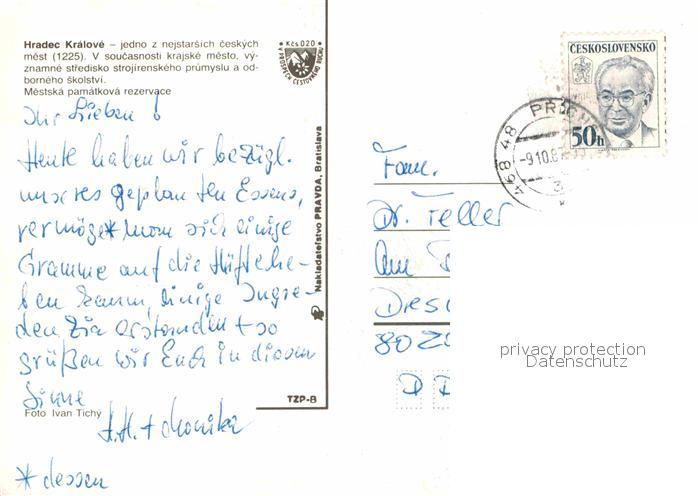 Hradec Králové – jedno z nejstarších českých
měst (1225). V současnosti krajské město, vý-
znamné středisko strojírenského průmyslu a od-
borného školství.
Městská památková rezervace
Kčs 0,20
VE PROSPĚCH CESTOVNÍHO RUCHU
Ihr Lieben!
Heute haben wir bezügl.
unseres geplanten Essens,
vermöge* man sich einige
Gramme auf die Hüfte he-
ben kann, einige Ingre-
denzia erstanden + so
grüßen wir Euch in diesem
Sinne
H.H. + Monika
*dessen
Foto Ivan Tichý
TZP-8
Nakladateľstvo PRAVDA, Bratislava
ČESKOSLOVENSKO
50h
468 48
-9.10.8
Fam.
Dr. Feller
Am
Dres
802
D D
privacy protection
Datenschutz